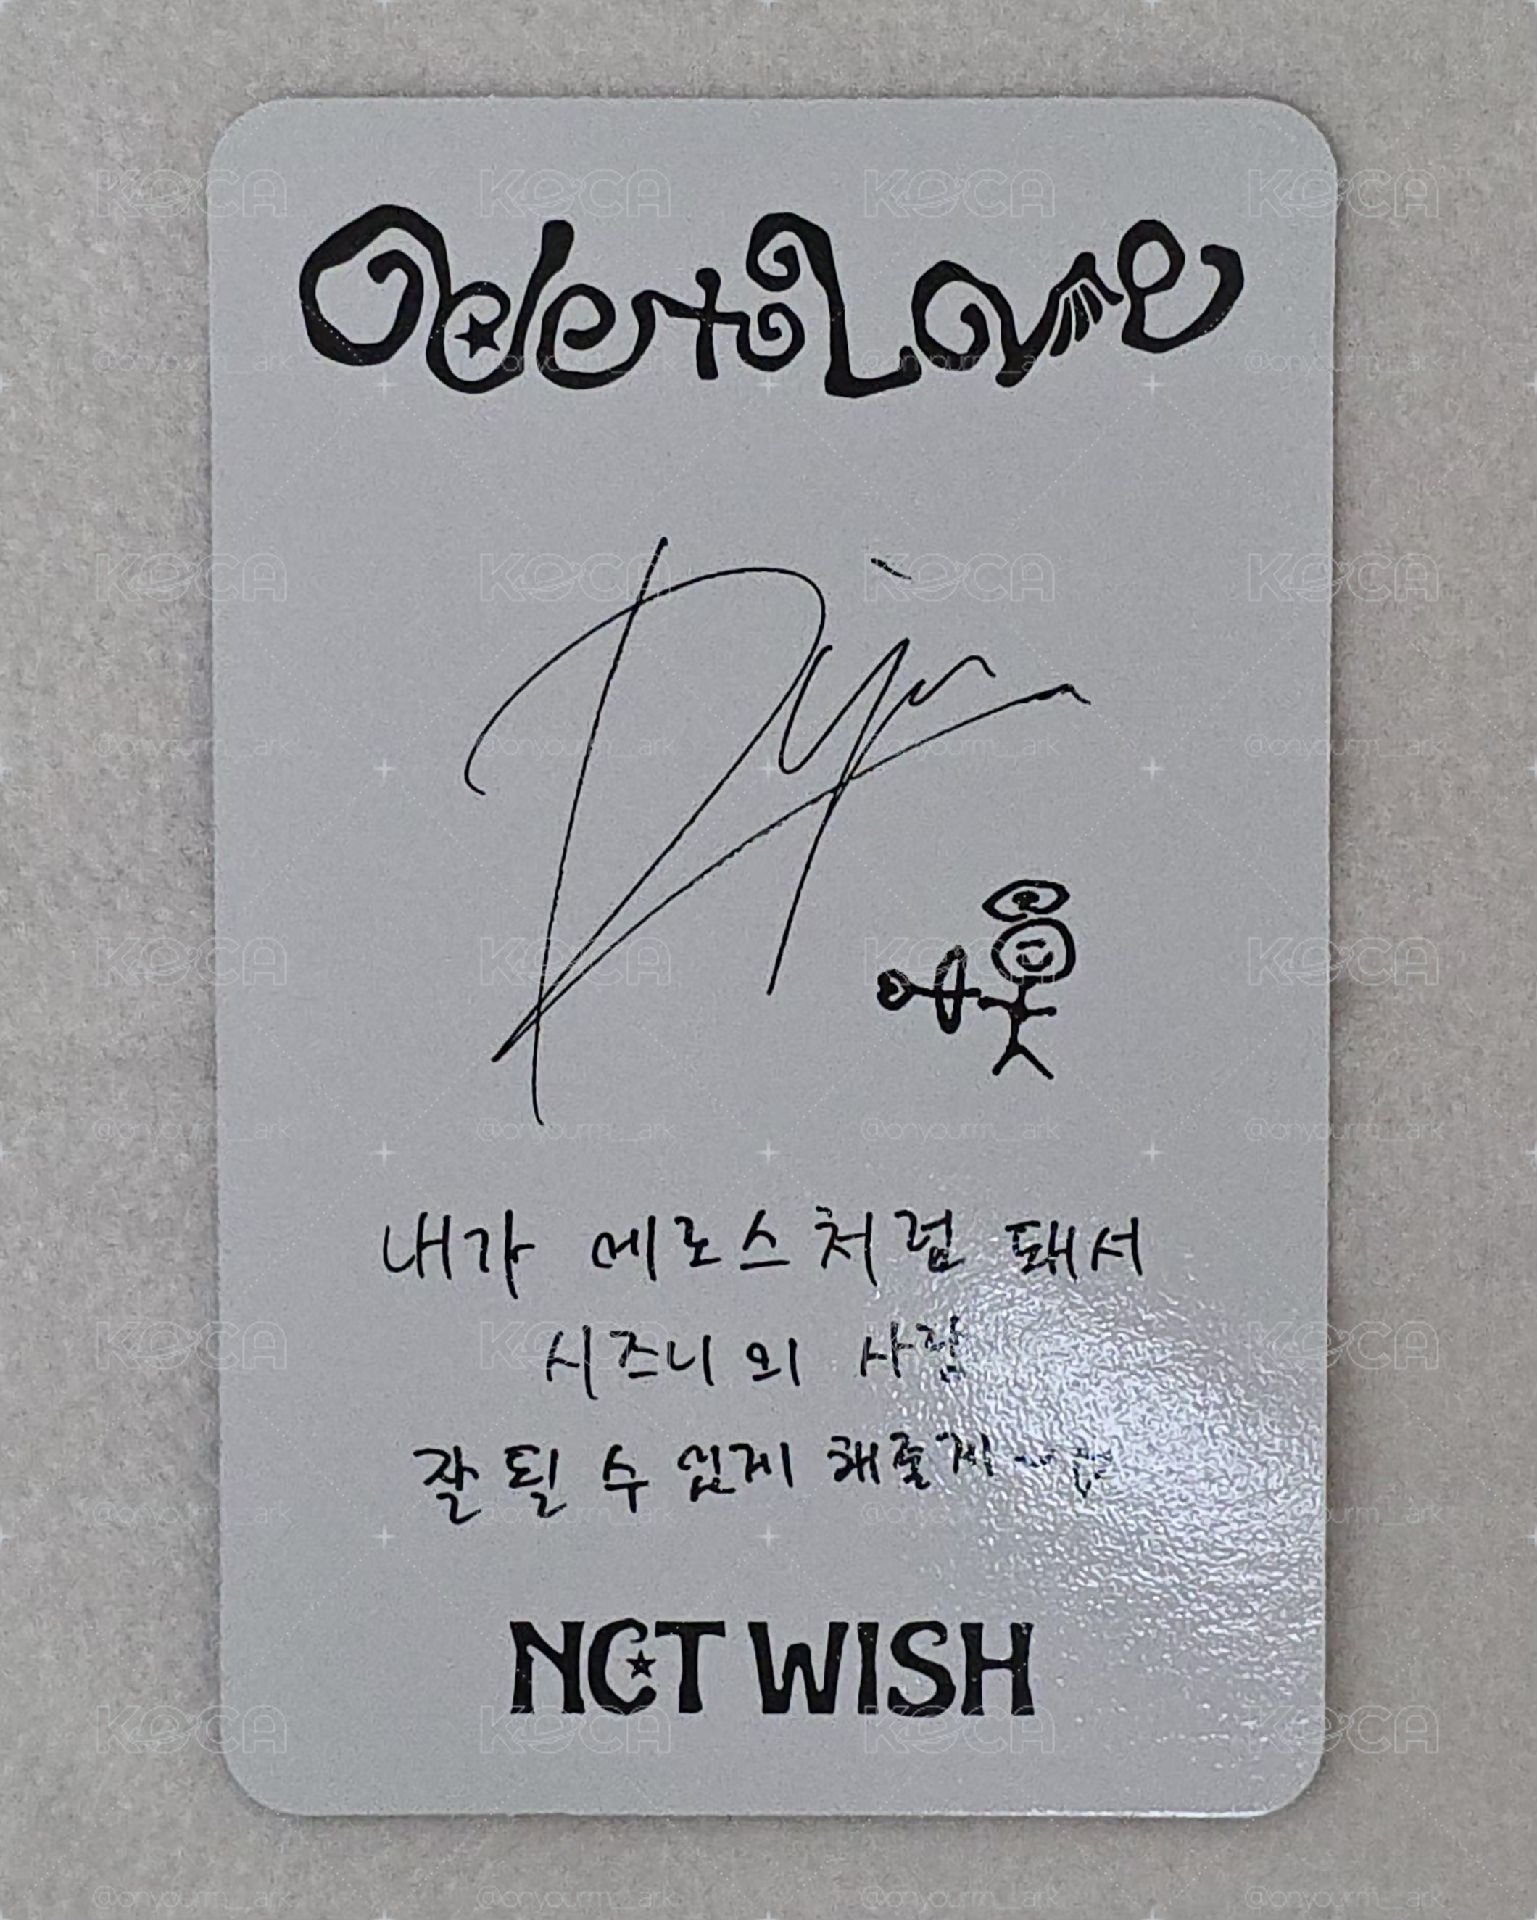 Ode to Love
Riku
내가 에로스처럼 돼서
시즈니의 사랑
잘 될 수 있게 해줄게
NCT WISH
KOCA
@onyourm__ark